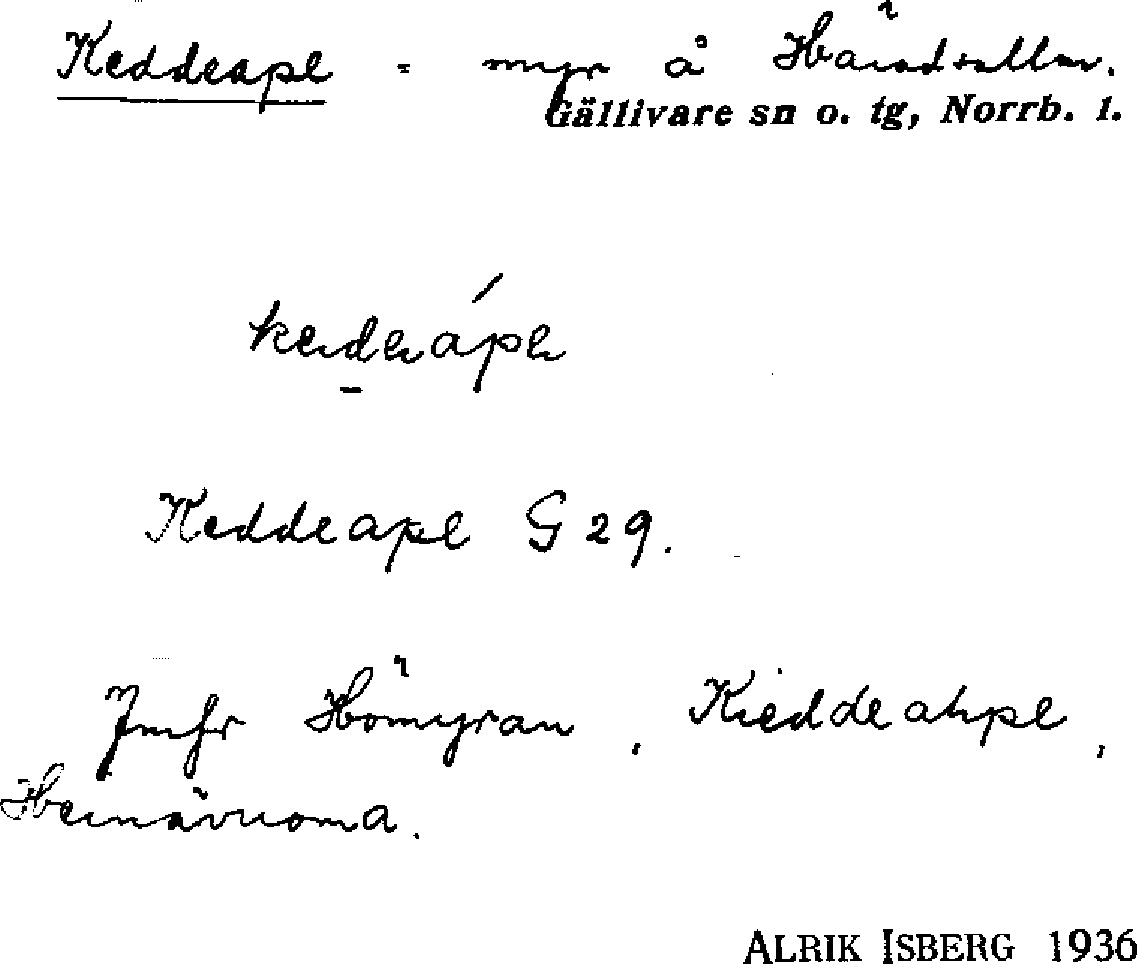 Keddeapl - myr å Häradsallm.
Gällivare sn o. tg, Norrb. l.
Keddeapl G 29.
Jmfr Hömyran, Kieddeahpe,
Heinävuoma.
ALRIK ISBERG 1936